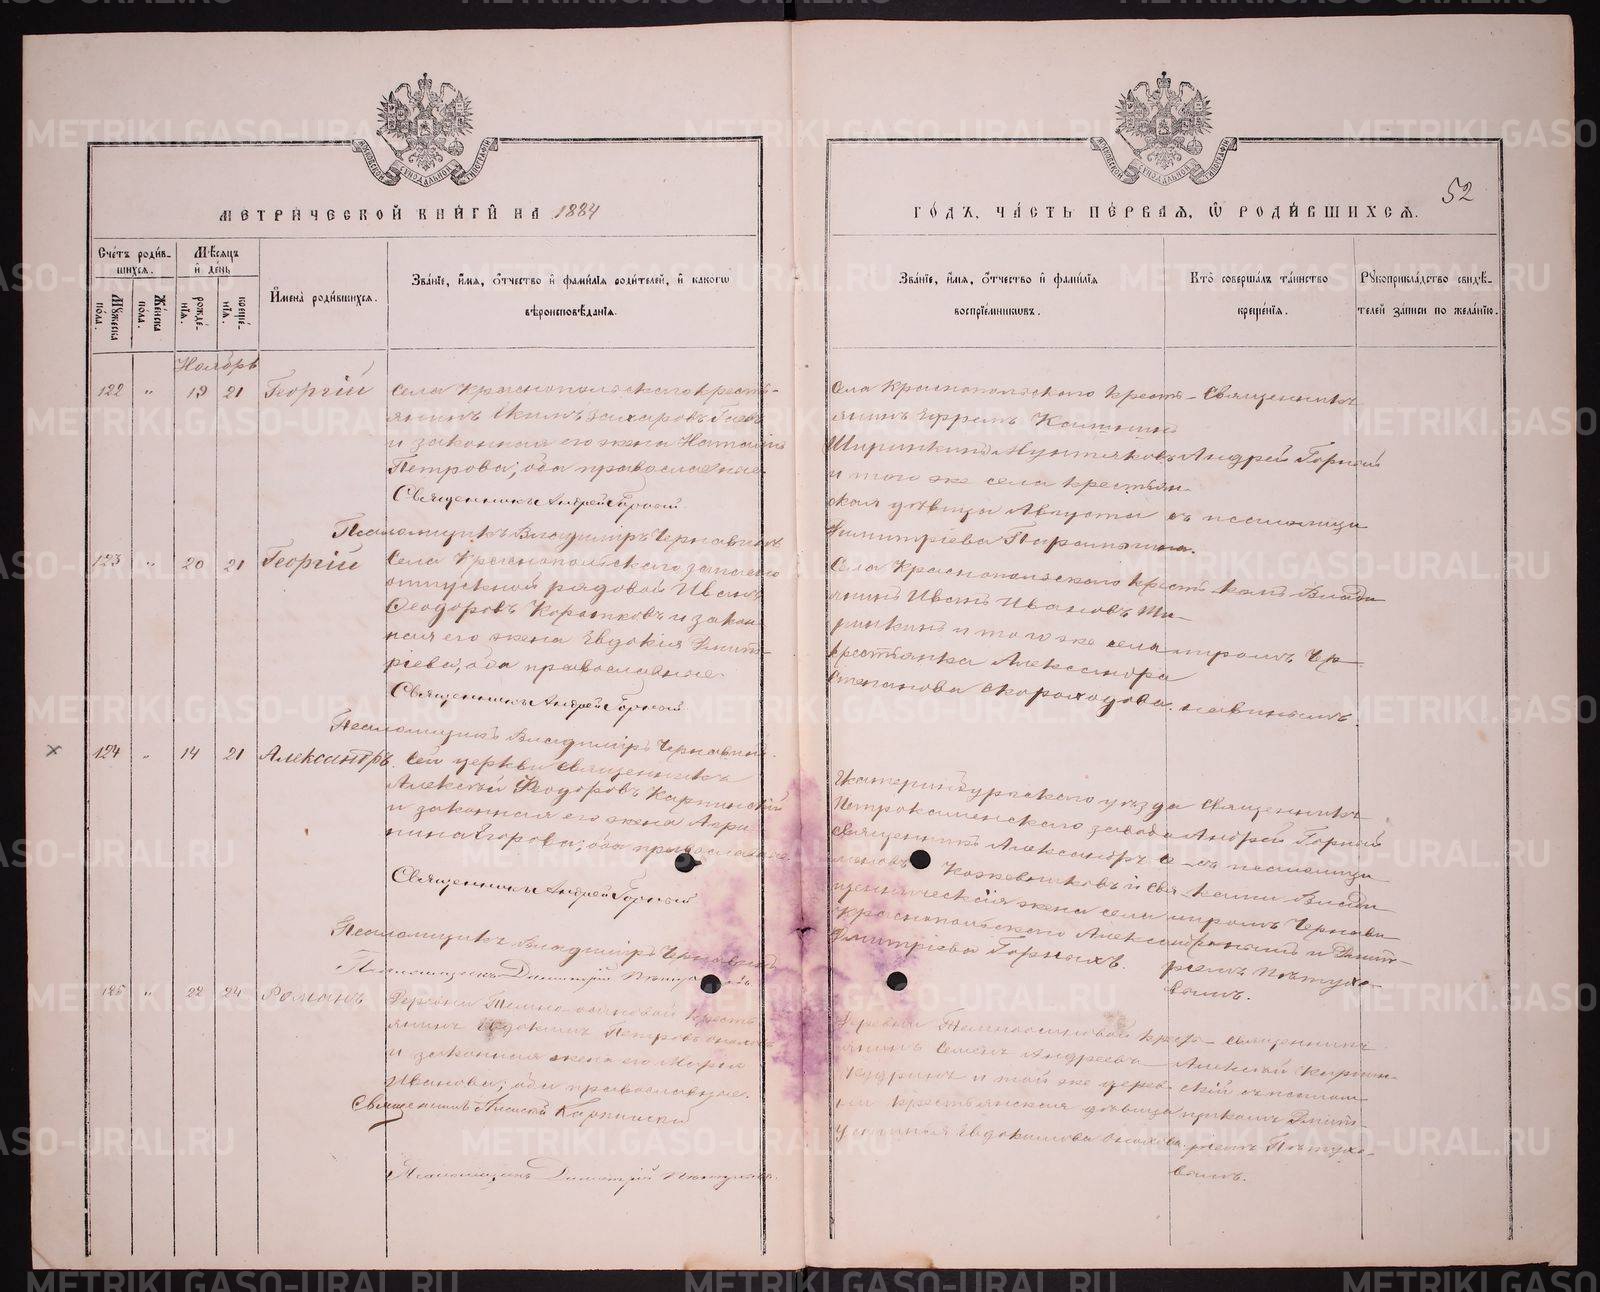 МЕТРИЧЕСКОЙ КНИГИ НА 1884
ГОДЪ, ЧАСТЬ ПЕРВАЯ, Ѡ РОДИВШИХСЯ.
52
Счетъ родившихся.
Мужеска пола.
Женска пола.
Мѣсяцъ и день
рожденія.
крещенія.
Имена родившихся.
Званіе, имя, отчество и фамилія родителей, и какого
вѣроисповѣданія.
Званіе, имя, отчество и фамилія
воспріемниковъ.
Кто совершалъ таинство
крещенія.
Рукоприкладство свидѣ-
телей записи по желанію.
Ноябрь
122 " 19 21 Георгій
Села Краснопольскаго кресть-
янинъ Екимъ Захаровъ
и законная его жена Наталія
Петрова, оба православные.
Священникъ Андрей Горный
Псаломщикъ Владиміръ Чернавинъ
Села Краснопольскаго кресть-
янинъ
Ширинкинъ
и того же села крестьян-
ская дѣвица Августа
Димитріева
Священникъ
Андрей Горный
съ псаломщи-
123 " 20 21 Георгій
Села Краснопольскаго запасно
отпускной рядовой Иванъ
Ѳеодоровъ Коротковъ и закон-
ная его жена Евдокія Димит-
ріева, оба православные.
Священникъ Андрей Горный
Псаломщикъ Владиміръ Чернавинъ
Села Краснопольскаго кресть-
янинъ Иванъ Ивановъ Ши-
ринкинъ и того же села
крестьянка Александра
Степанова Скороходова.
комъ Влади-
міромъ Чер-
навинымъ.
124 " 14 21 Александръ
Сей церкви священникъ
Алексѣй Ѳеодоровъ Карпинскій
и законная его жена Агри-
пина Егорова, оба православные.
Священникъ Андрей Горный
Псаломщикъ Владиміръ Чернавинъ
Псаломщикъ Димитрій Пѣтуховъ
Екатеринбургскаго уѣзда
Петрокаменскаго завода
священникъ Александръ Се-
меновъ Кожевниковъ и свя-
щенническая жена села
Краснопольскаго Александра
Димитріева Горныхъ.
Священникъ
Андрей Горный
съ псаломщи-
ками Влади-
міромъ Чернави-
нымъ и Димит-
ріемъ Пѣтухо-
вымъ.
125 " 22 24 Романъ
Деревни Темно-осиновой кресть-
янинъ Евдокимъ Петровъ
и законная жена его Марѳа
Иванова, оба православные.
Священникъ Алексѣй Карпинскій
Псаломщикъ Димитрій Пѣтуховъ.
Деревни Темноосиновой крес-
янинъ Семенъ Андреевъ
Кудринъ и той же дерев-
ни крестьянская дѣвица
Устинья Евдокимова
Священникъ
Алексѣй Карпин-
скій съ псалом-
щикомъ Димит-
ріемъ Пѣтухо-
вымъ.
METRIKI.GASO-URAL.RU